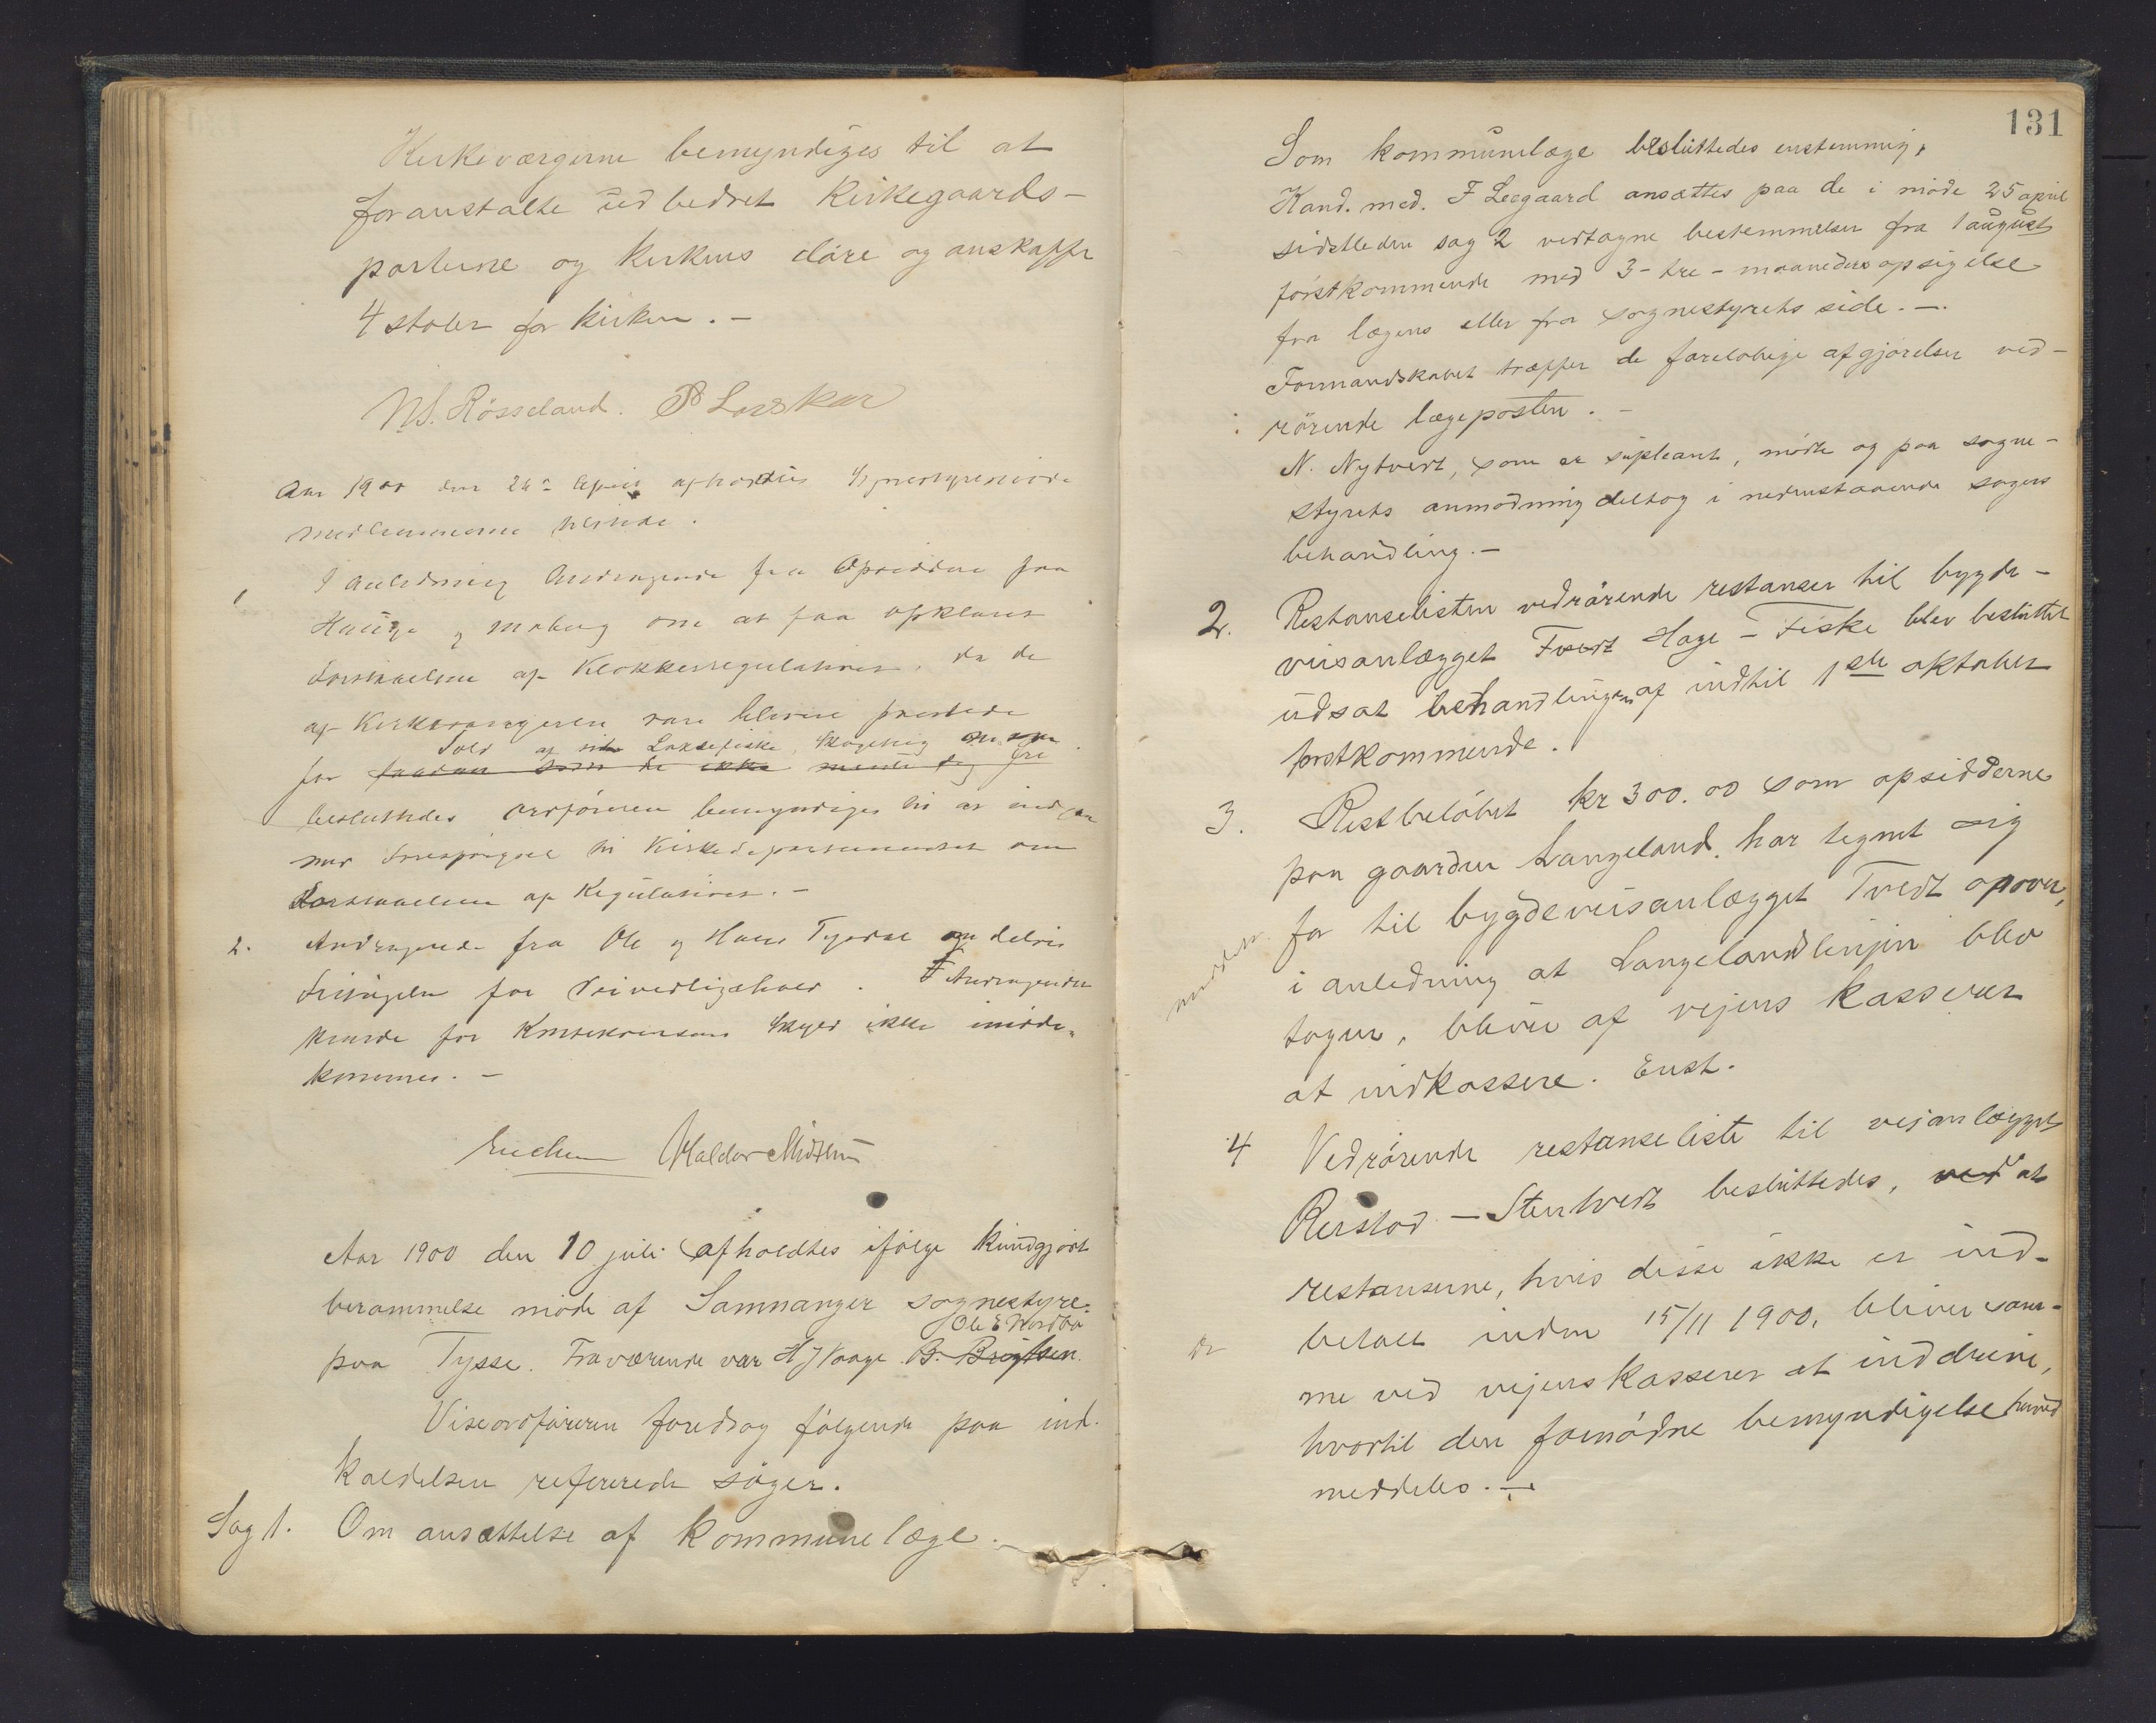 Kirkeværgerne bemyndiges til at
foranstalte udbedret Kirkegaards-
porterne og kirkens döre og anskaffe
4 stoler for kirken. -
NS. Rösseland.
Aar 1900 den april afholdtes Sognestyremöde
Medlemmerne tilstede.
1 I anledning Andragende fra Opsiddere paa
Hauge og om at faa opklaret
Forstaaelsen af Klokkerregulativet, da de
af Kirkesangeren
for
Told af Laxefiske, Skogsteig
besluttedes ordföreren bemyndiges til at indgaa
med Forespörgsel til Kirkedepartementet om
Forstaaelsen af Regulativet. -
2. Andragende fra Ole og Hans Tysdal om delvis
Fritagelse for Veivedligehold. Andragendet
kunde for Konsekvensens Skyld ikke imöde-
kommes. -
Haldor
Aar 1900 den 10 juli afholdtes ifölge kundgjort
berammelse möde af Samnanger sognestyre
Ole E Nordbö
paa Tysse. Fraværende var H J Vaage B. Brigtsen.
Viseordföreren foredrog fölgende paa ind-
kaldelsen refererede sager.
Sag 1. Om ansættelse af kommunelæge.
131
Som kommunelæge besluttedes enstemmig,
Kand. med. F Leegaard ansættes paa de i möde 25 april
sidstleden sag 2 vedtagne bestemmelser fra 1 august
förstkommende med 3 - tre - maaneders opsigelse
fra lægens eller fra sognestyrets side. -
Formandskabet træffer de forelöbige afgjörelser ved-
rörende lægeposten. -
N. Nytvedt, som er supleant, mödte og paa sogne-
styrets anmodning deltog i nedenstaaende sagers
behandling. -
2. Restanselisten vedrörende restanser til bygde-
veisanlægget Tvedt Hage - Fiske blev besluttet
udsat behandlingen af indtil 1ste oktober
förstkommende.
3. Restbelöbet kr 300.00 som opsidderne
paa gaarden Langeland, har tegnet sig
for til bygdeveisanlægget Tvedt opover,
i anledning at Langelandlinjen blev
tagen, bliver af vejens kasserer
at indkassere. Enst.
4 Vedrörende restanseliste til vejanlægget
Reistad - Stentvedt besluttedes, ved at
restanserne, hvis disse ikke er ind-
betalt inden 15/11 1900, bliver sam-
me ved vejens kasserer at inddrive,
hvortil den fornödne bemyndigelse herved
meddeles. -